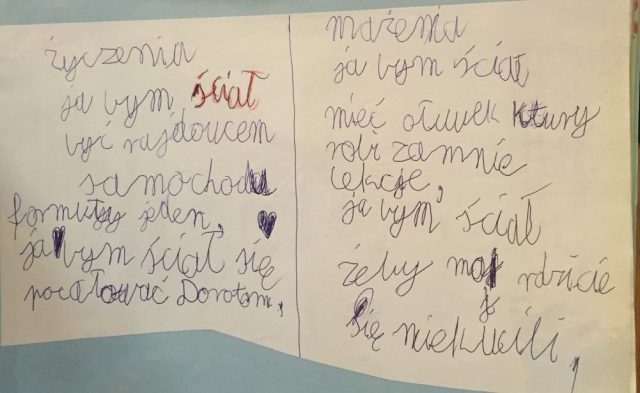 życzenia
ja bym ściał
być rajdoucem
samochodu
formuły jeden,
ja bym ściał się
pocałować Dorotom,
mażenia
ja bym ściał
mieć ołuwek ktury
robi zamnie
lekcje,
ja bym ściał
żeby moj rdzicie
się niekucili,